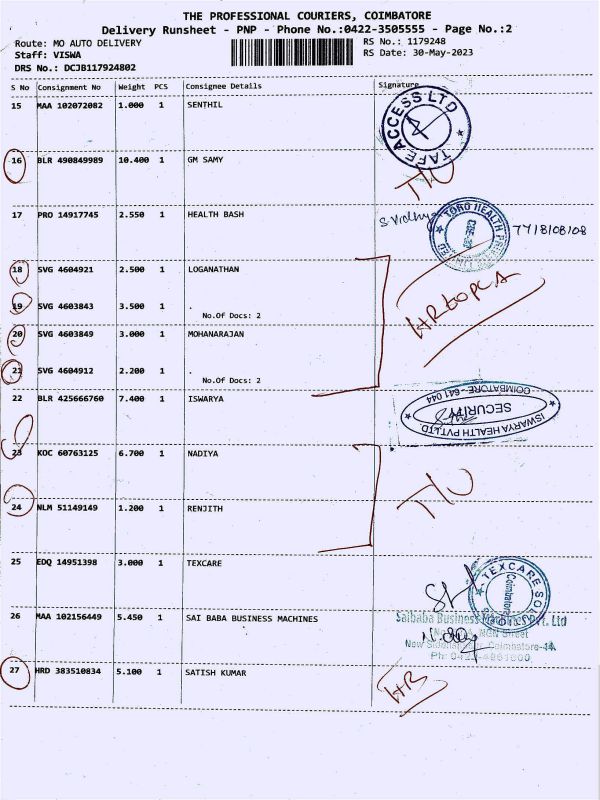 THE PROFESSIONAL COURIERS, COIMBATORE
Delivery Runsheet - PNP - Phone No.:0422-3505555 - Page No.:2
Route: MO AUTO DELIVERY RS No.: 1179248
Staff: VISWA RS Date: 30-May-2023
DRS No.: DCJB117924802
S No Consignment No Weight PCS Consignee Details Signature
15 MAA 102072082 1.000 1 SENTHIL
TAFE ACCESS LTD
16 BLR 490849989 10.400 1 GM SAMY
17 PRO 14917745 2.550 1 HEALTH BASH
S Vidhya TORO HEALTH 7718108108
18 SVG 4604921 2.500 1 LOGANATHAN
19 SVG 4603843 3.500 1 .
No.Of Docs: 2
20 SVG 4603849 3.000 1 MOHANARAJAN
21 SVG 4604912 2.200 1 .
No.Of Docs: 2
22 BLR 425666760 7.400 1 ISWARYA
ISWARYA HEALTH PVT.LTD.
SECURITY
COIMBATORE - 641 044
23 KOC 60763125 6.700 1 NADIYA
24 NLM 51149149 1.200 1 RENJITH
25 EDQ 14951398 3.000 1 TEXCARE
TEXCARE SOL
Coimbatore
26 MAA 102156449 5.450 1 SAI BABA BUSINESS MACHINES
Saibaba Business Machines Pvt. Ltd
NGN Street
Coimbatore-44
27 HRD 383510834 5.100 1 SATISH KUMAR